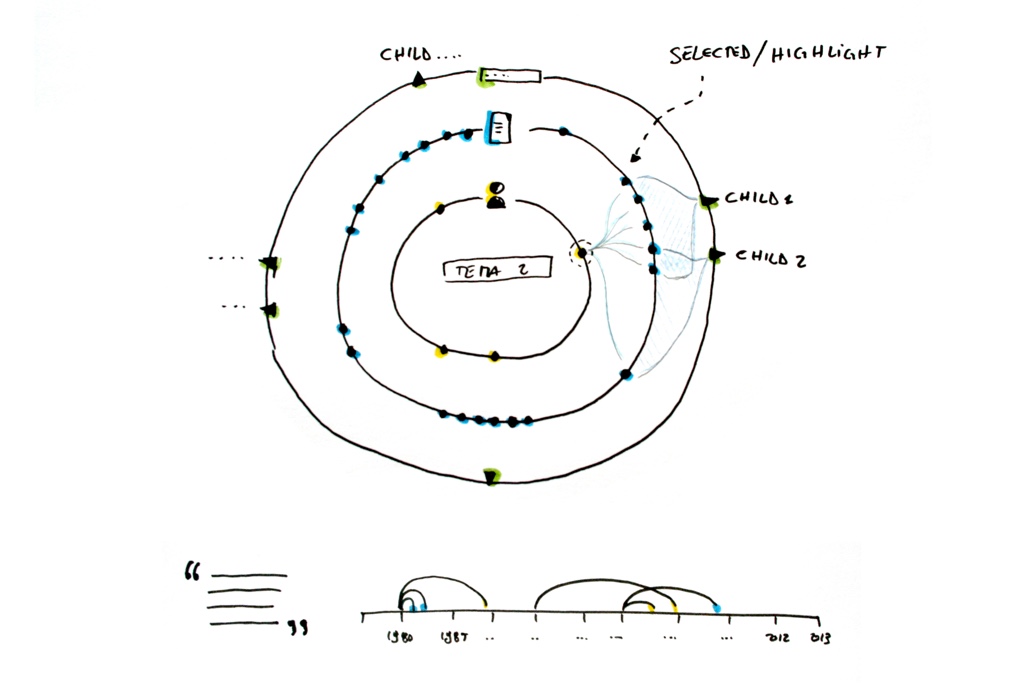 CHILD....
SELECTED/HIGHLIGHT
....
CHILD 1
CHILD 2
....
TEMA 2
...
“
”
1980 1987 .. .. ... ... ... ... 2012 2013